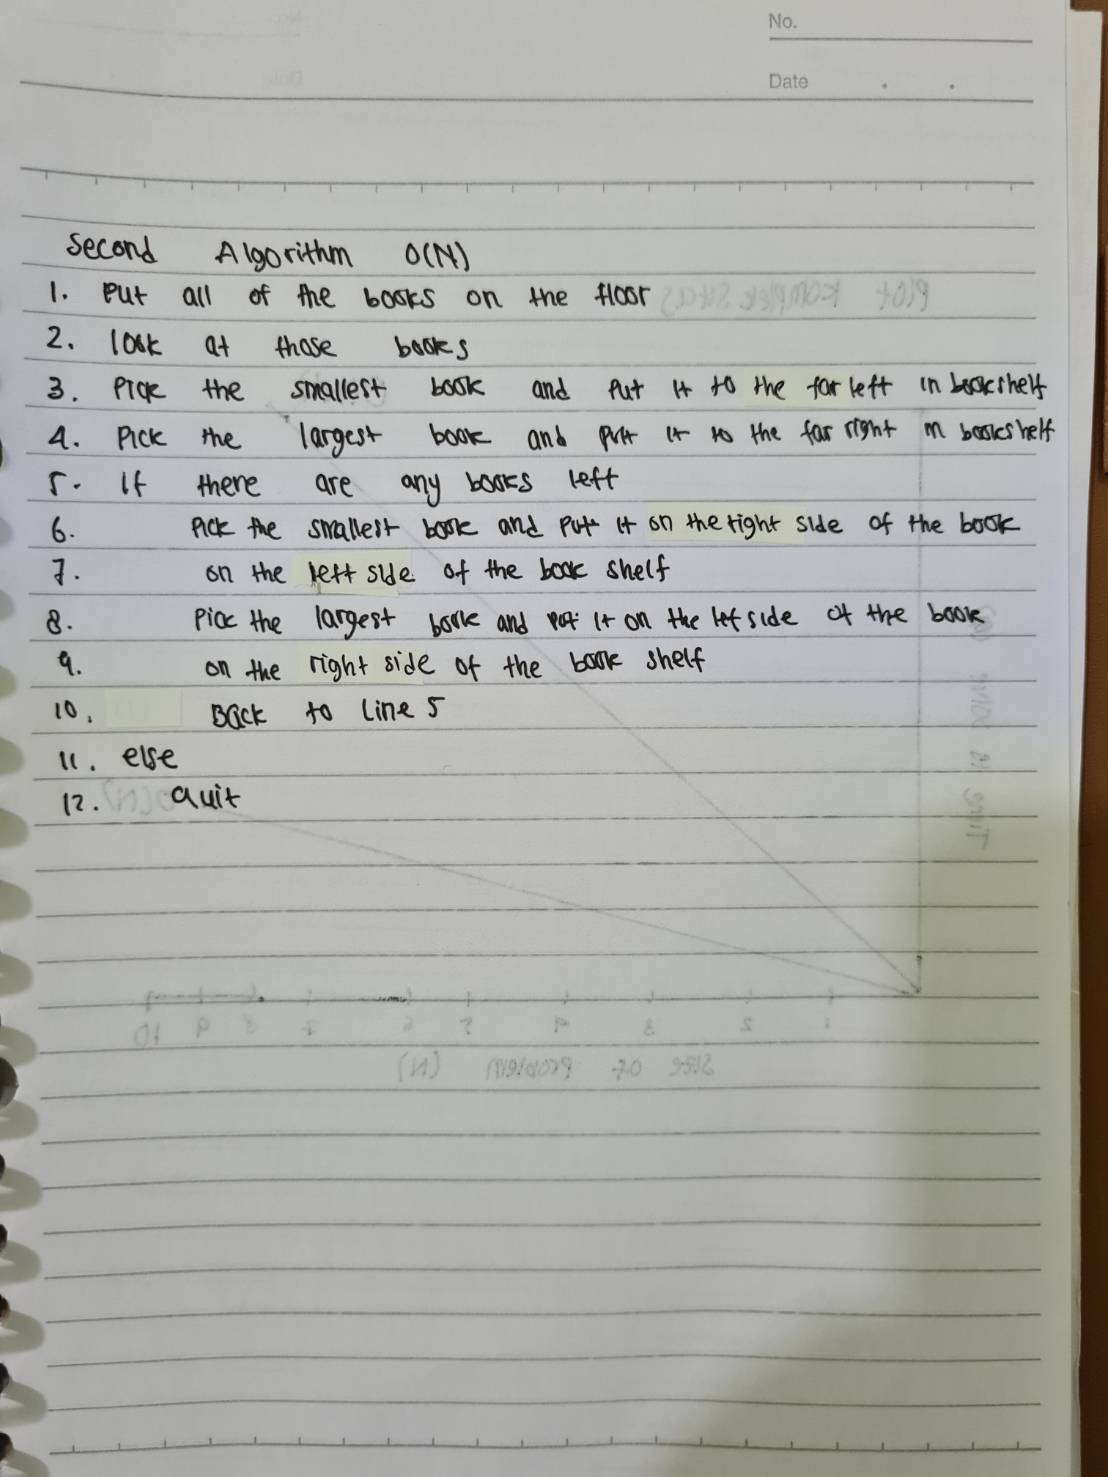 No.
Date
Second Algorithm O(N)
1. Put all of the books on the floor
2. look at those books
3. Pick the smallest book and Put it to the far left in bookshelf
4. Pick the largest book and Put it to the far right in bookshelf
5. If there are any books left
6. Pick the smallest book and Put it on the right side of the book
7. on the left side of the book shelf
8. Pick the largest book and put it on the lef side of the book
9. on the right side of the book shelf
10. Back to Line 5
11. else
12. quit